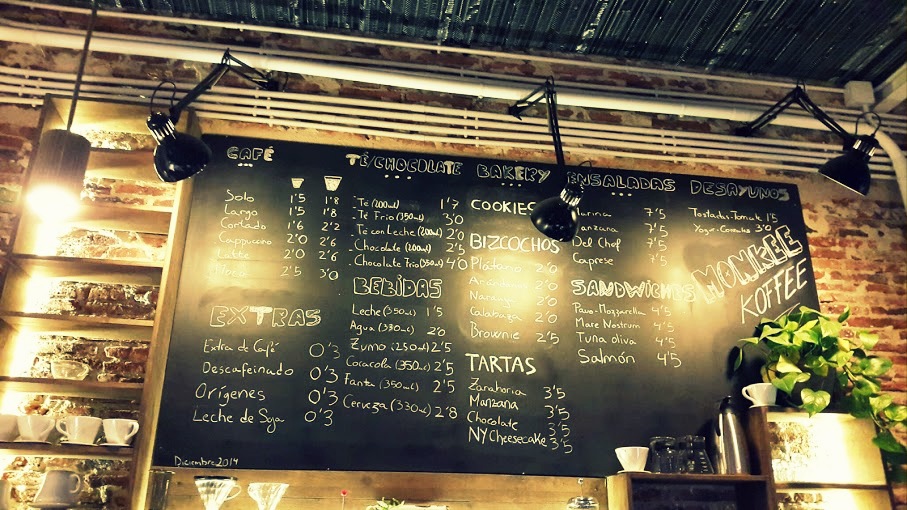 CAFÉ
Solo 1'5 1'8
Largo 1'5 1'8
Cortado 1'6 2'2
Cappuccino 2'0 2'6
Latte 2'0 2'6
2'5 3'0
EXTRAS
Extra de Café 0'3
Descafeinado 0'3
Orígenes 0'3
Leche de Soja 0'3
Diciembre 2014
TÉ/CHOCOLATE
Té (200ml) 1'7
Té Frío (350ml) 3'0
Té con Leche (200ml) 2'0
Chocolate (200ml) 2'5
Chocolate Frío (350ml) 4'0
BEBIDAS
Leche (350ml) 1'5
Agua (330ml) 2'0
Zumo (250ml) 2'5
Cocacola (350ml) 2'5
Fanta (350ml) 2'5
Cerveza (330ml) 2'8
BAKERY
COOKIES
BIZCOCHOS
Plátano 2'0
2'0
Naranja 2'0
Calabaza 2'0
Brownie 2'5
TARTAS
Zanahoria 3'5
Manzana 3'5
Chocolate 3'5
NY Cheesecake 3'5
ENSALADAS
7'5
Manzana 7'5
Del Chef 7'5
Caprese 7'5
SANDWICHES
Pavo-Mozzarella 4'5
Mare Nostrum 4'5
Tuna oliva 4'5
Salmón 4'5
DESAYUNOS
Tostadas-Tomate 1'5
Yogur-Cereales 3'0
MONKEE
KOFFEE